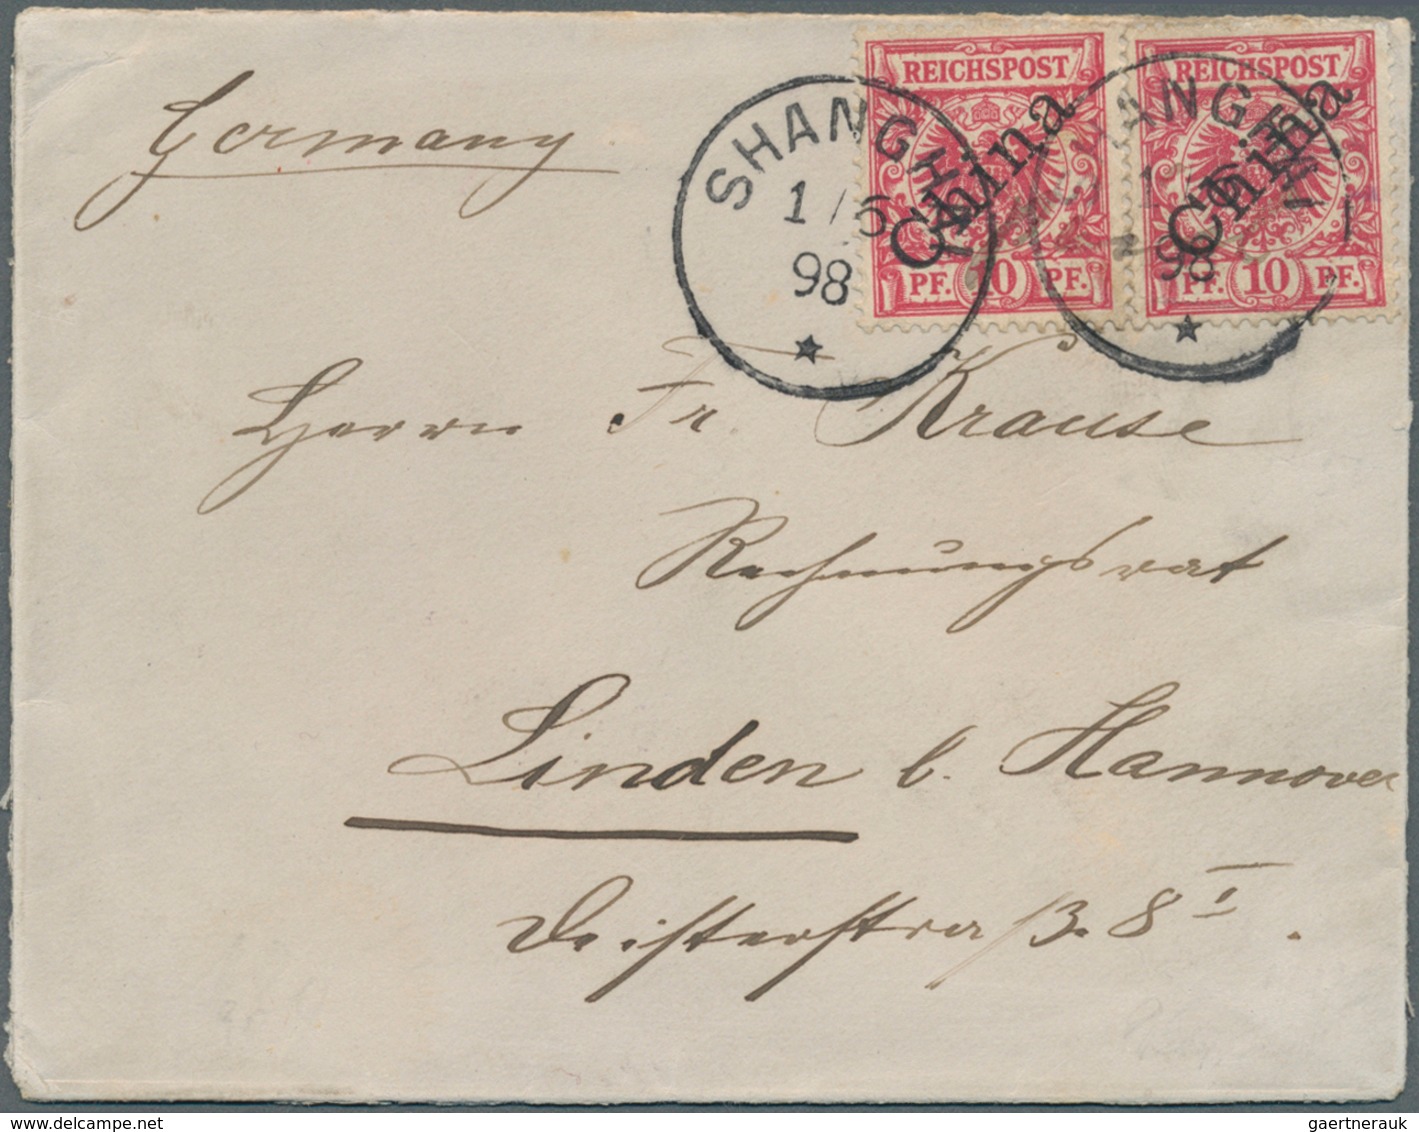 Germany
REICHSPOST
China
PF. 10 PF.
REICHSPOST
China
PF. 10 PF.
SHANGHAI
1/6
98
SHANGHAI
1/6
98
Herrn Fr. Krause
Rechnungsrat
Linden b. Hannover
Deisterstraße 8 I
gaertnerauk